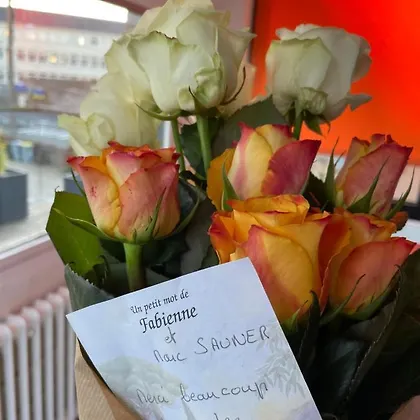 Un petit mot de
Fabienne
et
Marc SAUNER
Merci beaucoup